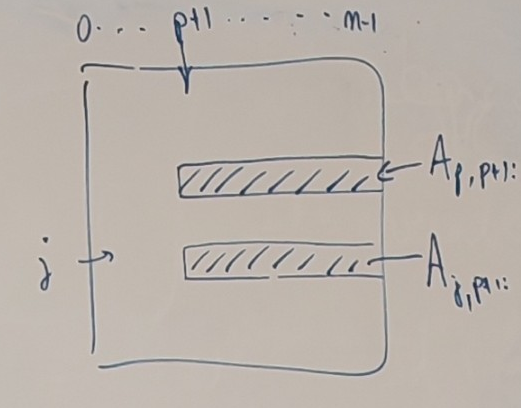 0 . . . p+1 . . . . . . n-1
A_{p,p+1:}
j
A_{j,p+1:}